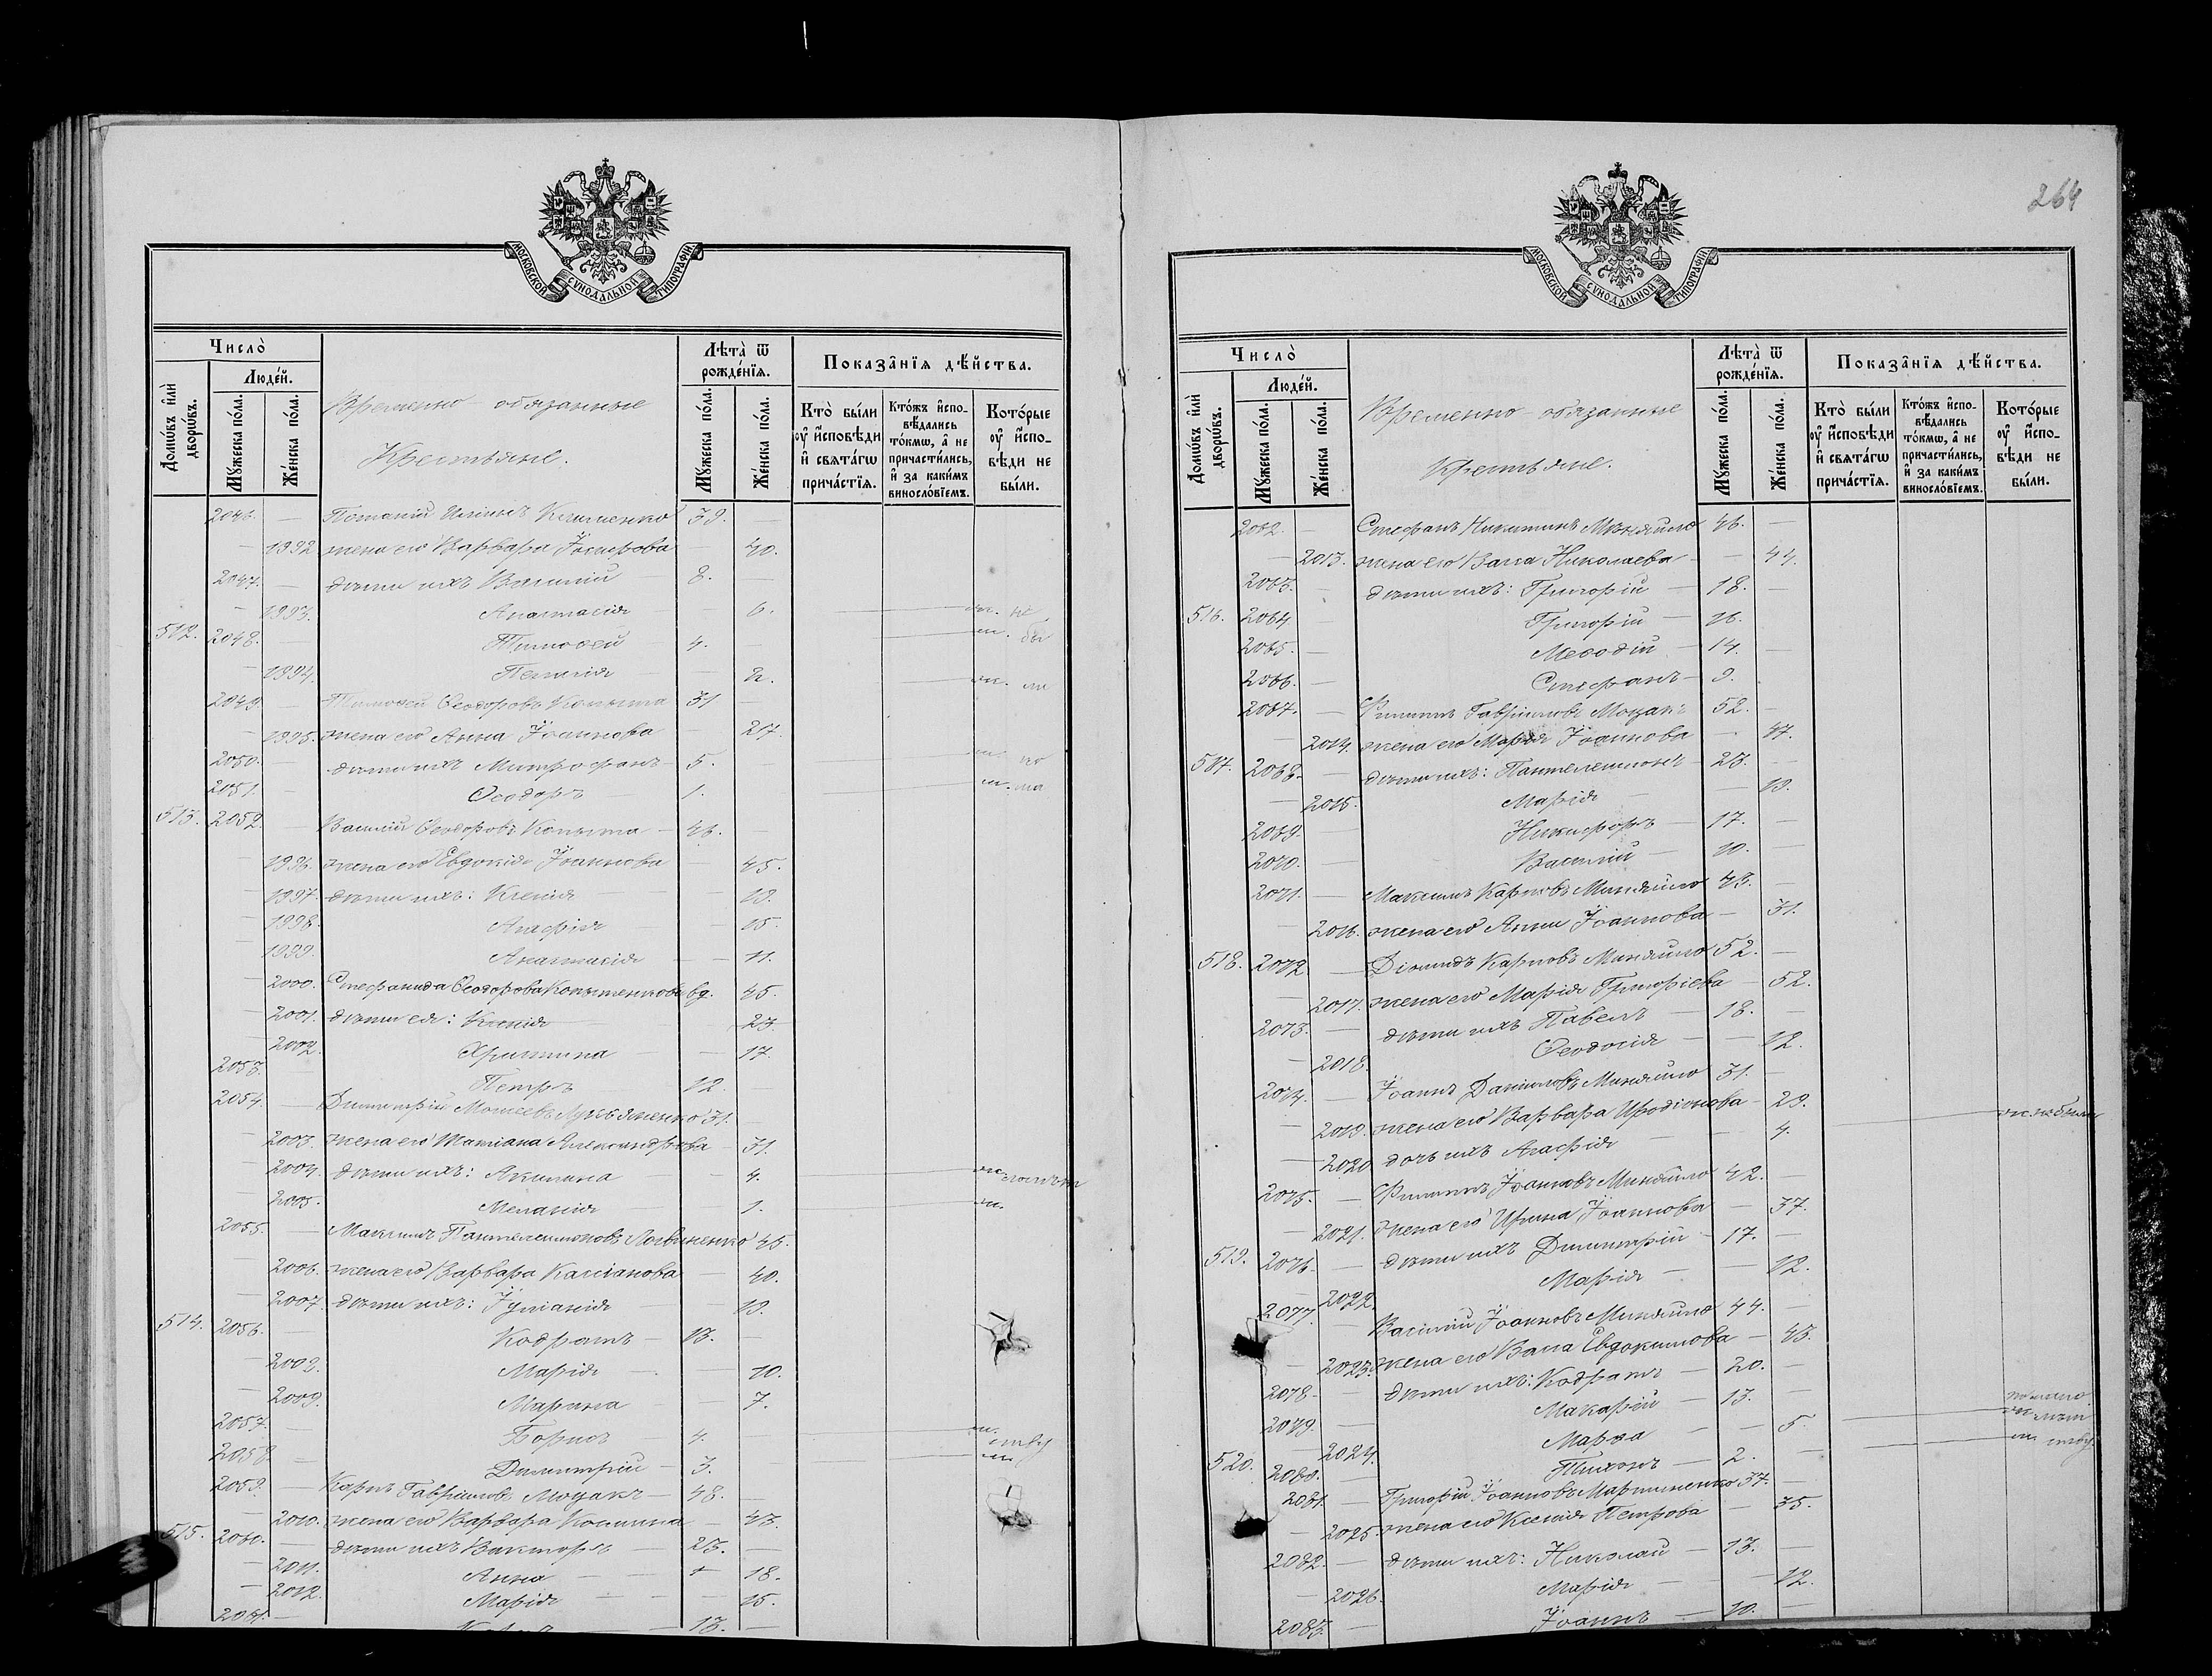 МОСКОВСКОЙ СУНОДАЛЬНОЙ ТИПОГРАФІИ
Число̀
Домѡ́въ и҆лѝ дворѡ́въ.
Люде́й.
Мꙋ́жеска по́ла.
Же́нска по́ла.
Временно-обязанные
Крестьяне.
Лѣта̀ ѿ рожде́нїѧ.
Мꙋ́жеска по́ла.
Же́нска по́ла.
Показа̑нїѧ дѣ́йства.
Кто̀ бы́ли ᲂу҆ и҆сповѣ́ди и҆ свѧта́гѡ прича́стїѧ.
Кто́жъ и҆спо- вѣ́дались то́кмѡ, а҆ не причасти́лись, и҆ за каки́мъ винослѡ́вїемъ.
Кото́рые ᲂу҆ и҆спо- вѣ́ди не бы́ли.
2046. — 39. —
— 1992 жена его Варвара — 40.
2047. — дѣти ихъ 8. —
— 1993. Анастасія — 6.
512. 2048. — Тимоѳей 4. —
— 1994. — 2.
2049. — Тимоѳей Ѳеодоровъ Копыта 31 —
— 1995. жена его Анна Іоаннова — 27.
2050. — дѣти ихъ Митрофанъ — 5. —
2051. — Ѳеодоръ 1. —
513. 2052. — Василій Ѳеодоровъ Копыта — 46. —
— 1996. жена его Евдокія Іоаннова — 45.
— 1997. дѣти ихъ: Ксенія — 19.
— 1998. Агафія — 15.
— 1999. Анастасія — 11.
2000. Стефанида Ѳеодорова Копытенкова вд. 45.
— 2001. дѣти ея: Ксенія 23
2002. Христина — 17.
2053. — Петръ 12. —
2054. — Димитрій Моисеевъ Лукьяненко 31.
— 2003. жена его Татіана Александрова — 31.
— 2004. дѣти ихъ: Акилина — 4.
— 2005. Меланія — 1.
2055. — Максимъ Пантелеимоновъ Логвиненко 45.
2006. жена его Варвара Кассіанова — 40.
— 2007. дѣти ихъ: Іуліанія — 19.
514. 2056. — Кодратъ — 13.
— 2008. Марія — 10.
— 2009. Марина — 7.
2057. — Борисъ 4. —
2058. — Димитрій — 3.
2059. — Карпъ Гавріиловъ Моцакъ — 48. —
— 2010. жена его Варвара — 43.
515. 2060. — дѣти ихъ Викторъ — 23. —
— 2011. Анна — 18.
— 2012. Марія — 15.
2061. — 13. —
264
МОСКОВСКОЙ СУНОДАЛЬНОЙ ТИПОГРАФІИ
Число̀
Домѡ́въ и҆лѝ дворѡ́въ.
Люде́й.
Мꙋ́жеска по́ла.
Же́нска по́ла.
Временно-обязанные
Крестьяне.
Лѣта̀ ѿ рожде́нїѧ.
Мꙋ́жеска по́ла.
Же́нска по́ла.
Показа̑нїѧ дѣ́йства.
Кто̀ бы́ли ᲂу҆ и҆сповѣ́ди и҆ свѧта́гѡ прича́стїѧ.
Кто́жъ и҆спо- вѣ́дались то́кмѡ, а҆ не причасти́лись, и҆ за каки́мъ винослѡ́вїемъ.
Кото́рые ᲂу҆ и҆спо- вѣ́ди не бы́ли.
2062. — Стефанъ Никитинъ 46. —
— 2013. жена его Васса Николаева — 44.
2063. дѣти ихъ: Григорій — 18. —
516. 2064 — Григорій — 16. —
2065. — Меѳодій — 14. —
2066. — Стефанъ — 9.
2067. — Филиппъ Гавріиловъ Моцакъ 52. —
— 2014. жена его Марія Іоаннова — 47.
517. 2068. — дѣти ихъ: Пантелеимонъ — 23. —
— 2015. Марія — 19.
2069. — Никифоръ — 17. —
2070. — Василій — 10. —
2071. — Максимъ Карповъ Миняйло 43. —
— 2016. жена его Анна Іоаннова — 31.
518. 2072. — Діомидъ Карповъ Миняйло 52. —
— 2017. жена его Марія Григоріева — 52.
2073. — дѣти ихъ Павелъ — 18. —
— 2018. Ѳеодосія — 12.
2074. — Іоаннъ Даніиловъ Миняйло 31. —
— 2019. жена его Варвара Иродіонова — 29.
— 2020 дочь ихъ Агафія — 4. не были
2075. — Филиппъ Іоанновъ Миняйло 42. —
— 2021. жена его Ирина Іоаннова — 37.
519. 2076. — дѣти ихъ Димитрій — 17. —
— 2022. Марія — 12.
2077. — Василій Іоанновъ Миняйло 44. —
— 2023. жена его Васса Евдокимова — 43.
2078. — дѣти ихъ: Кодратъ — 20. —
2079. — Макарій — 13. —
— 2024. Марѳа — 5.
520. 2080. — Тихонъ — 2. —
2081. — Григорій Іоанновъ Мартиненко 37. —
— 2025 жена его Ксенія Петрова — 35.
2082. — дѣти ихъ: Николай — 13. —
— 2026. Марія — 12.
2083. — Іоаннъ — 10. —